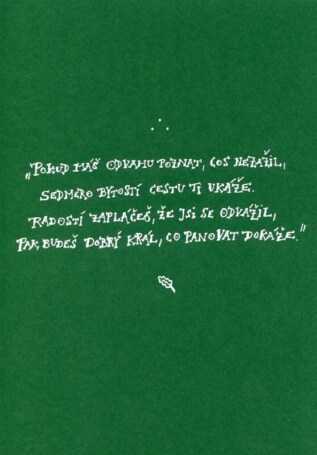 „POKUD MÁŠ ODVAHU POZNAT, COS NEZAŽIL,
SEDMERO BYTOSTÍ CESTU TI UKÁŽE.
RADOSTÍ ZAPLÁČEŠ, ŽE JSI SE ODVÁŽIL,
PAK BUDEŠ DOBRÝ KRÁL, CO PANOVAT DOKÁŽE.“